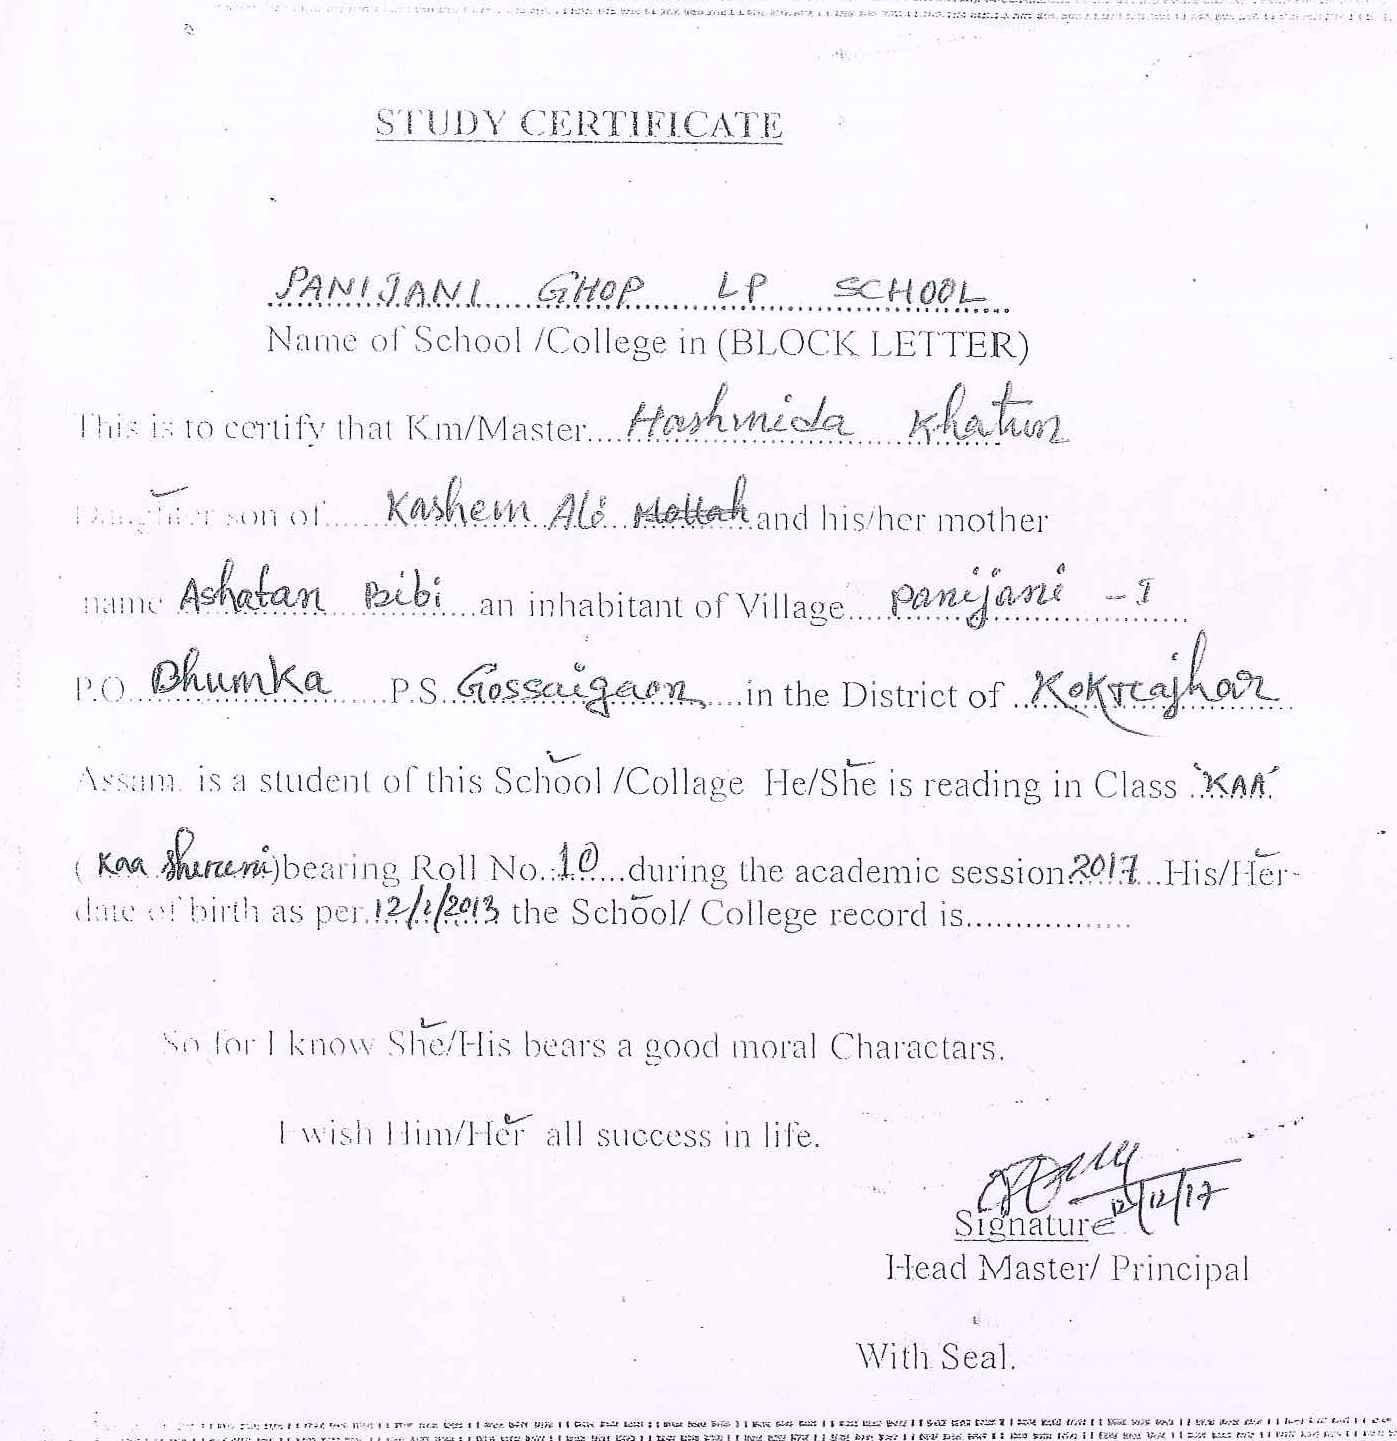 STUDY CERTIFICATE
PANIJANI GHOP LP SCHOOL
Name of School /College in (BLOCK LETTER)
This is to certify that Km/Master....Hashmida Khatun
Daughter son of......Kashem Ali Mollah and his/her mother
name Ashatan Bibi....an inhabitant of Village....Panijani - I
P.O. Bhumka.....P.S. Gossaigaon....in the District of ..Kokrajhar
Assam. is a student of this School /Collage He/She is reading in Class 'KAA'
(Kaa Shereni) bearing Roll No. 10...during the academic session 2017...His/Her-
date of birth as per.12/1/2013 the School/ College record is.................
So for I know She/His bears a good moral Charactars.
I wish Him/Her all success in life.
12/12/17
Signature
Head Master/ Principal
With Seal.